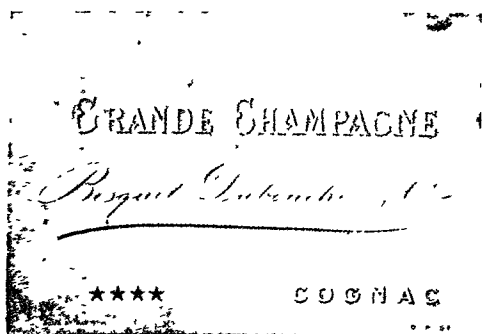 GRANDE CHAMPAGNE
Bisquit Dubouché &
★★★★ COGNAC